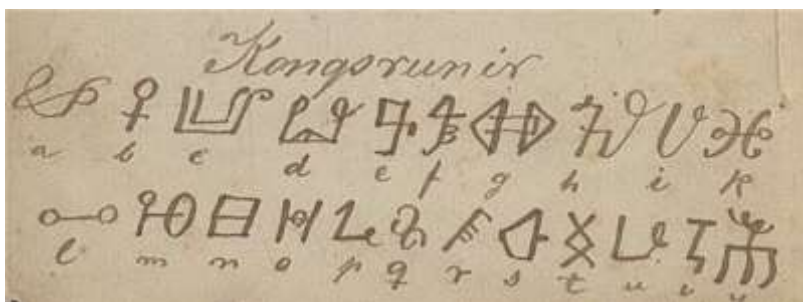 Kongsrunir
a b c d e f g h i k
l m n o p q r s t u